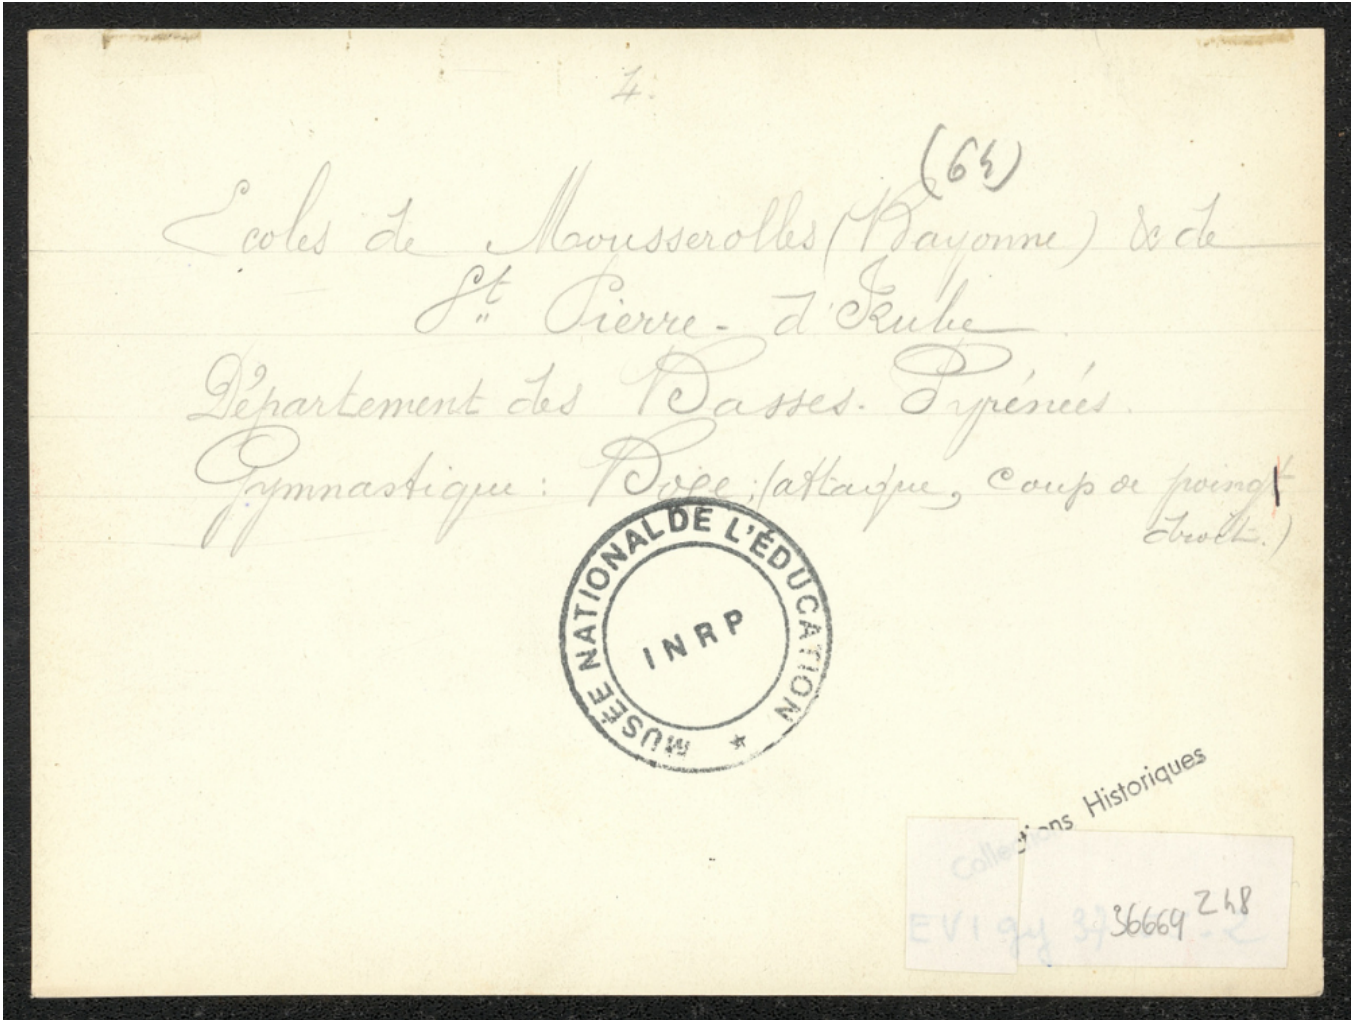 4.
(64)
Ecoles de Mousserolles (Bayonne) & de
St Pierre - d'Irube
Département des Basses-Pyrénées.
Gymnastique : Boxe ; (attaque, coup de poing
droit.)
MUSÉE NATIONAL DE L'ÉDUCATION
INRP
Collections Historiques
EVI gy 37
36669 248